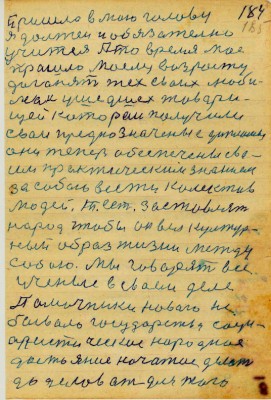 184
185
Пришло в мою голову
Я должен и обязательно
учится Это время мое
прашло моему возрасту
догонять тех своих люби-
мых ушедших товари-
щей которои получили
сваи предназначеные
они тепер обеспечены сво-
им практическим знанием
за собою вести колектив
людей. Т.ест. заставлят
народ чтобы он вел культур-
ный образ жизни между
собою. Мы говорят все
ученые в сваем деле
Помочники новаго не
бывало государства соци-
алистическое народное
достъяние начатое дело
для таго